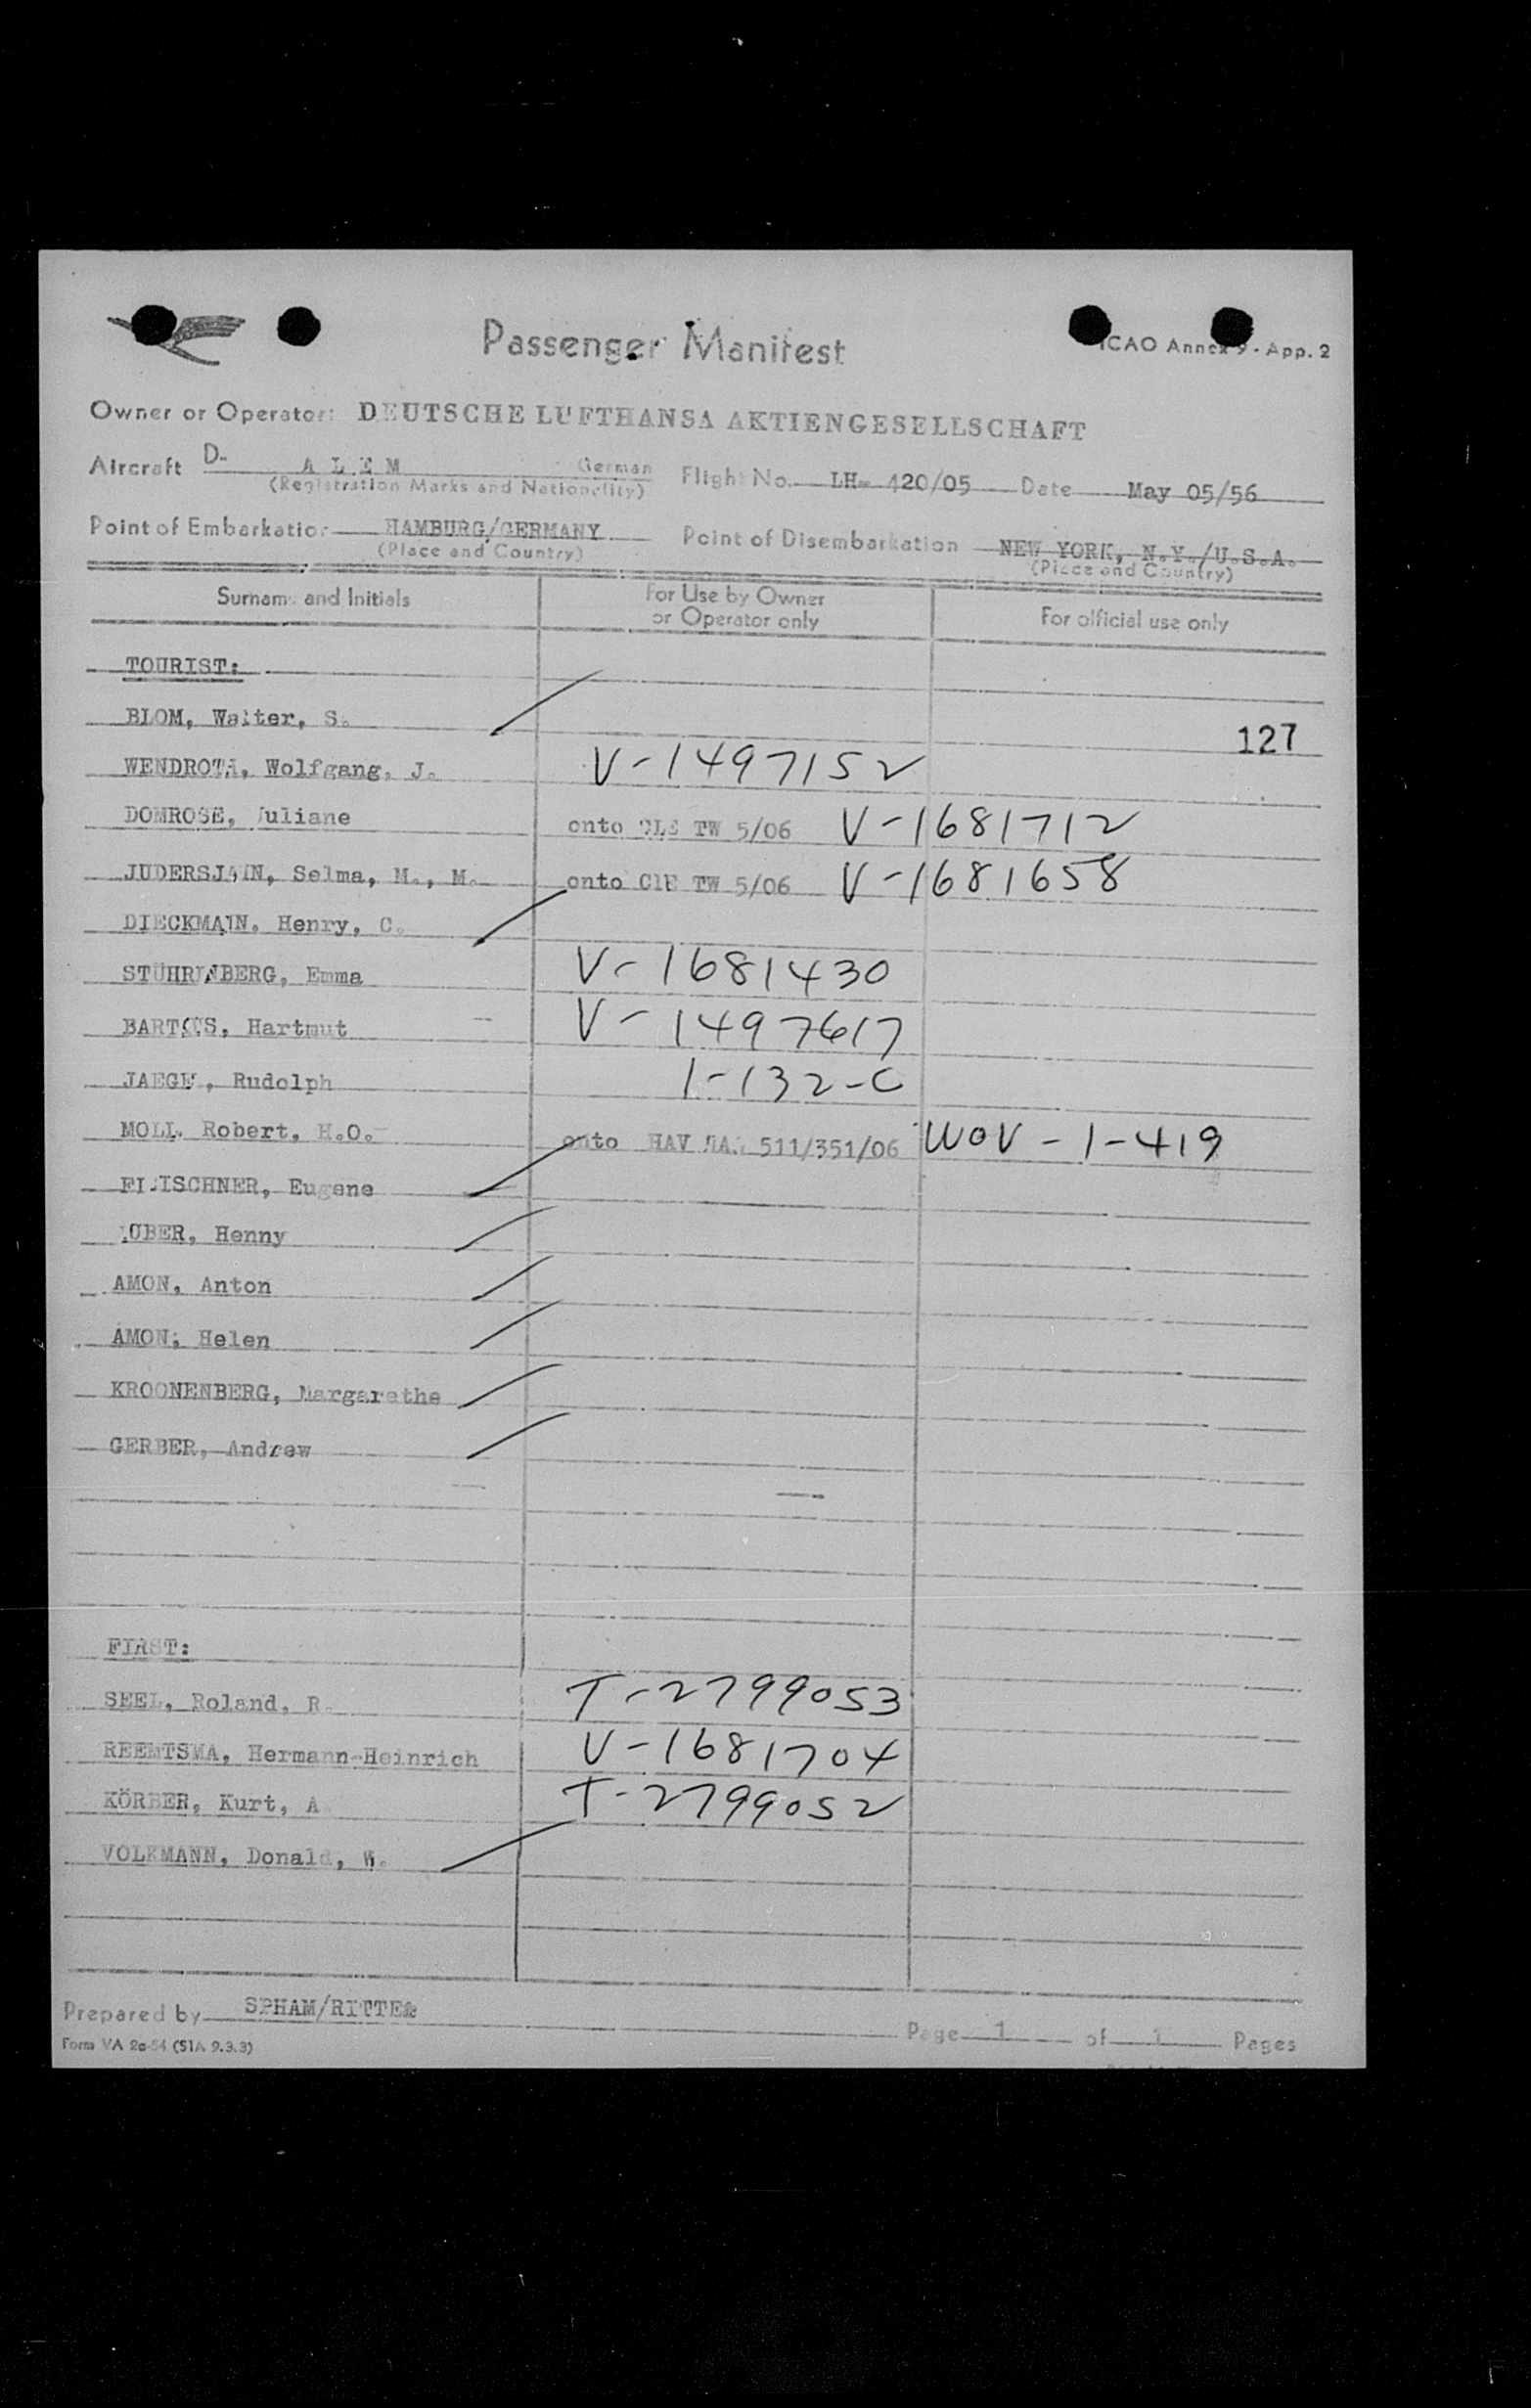 Passenger Manifest
ICAO Annex 9 - App. 2
Owner or Operator: DEUTSCHE LUFTHANSA AKTIENGESELLSCHAFT
Aircraft D- ALEM German Flight No. LH- 420/05 Date May 05/56
(Registration Marks and Nationality)
Point of Embarkation HAMBURG/GERMANY Point of Disembarkation NEW YORK, N.Y./U.S.A.
(Place and Country) (Place and Country)
Surname and Initials For Use by Owner or Operator only For official use only
TOURIST:
BLOM, Walter, S.
127
WENDROTH, Wolfgang, J. V-1497152
DOMROSE, Juliane onto CLE TW 5/06 V-1681712
Selma, M., M. onto ClE TW 5/06 V-1681658
DIECKMANN, Henry, C.
Emma V-1681430
Hartmut V-1497617
Rudolph 1-132-C
MOLL, Robert, H.O. onto HAV 511/351/06 WOV-1-419
Eugene
Henny
AMON, Anton
AMON, Helen
KROONENBERG, Margarethe
GERBER, Andrew
FIRST:
SEEL, Roland, R. T-2799053
REEMTSMA, Hermann-Heinrich V-1681704
KÖRBER, Kurt, A T-2799052
VOLKMANN, Donald, W.
Prepared by SPHAM/RITTER
Page 1 of 1 Pages
Form VA 2a-54 (S1A 9.3.3)